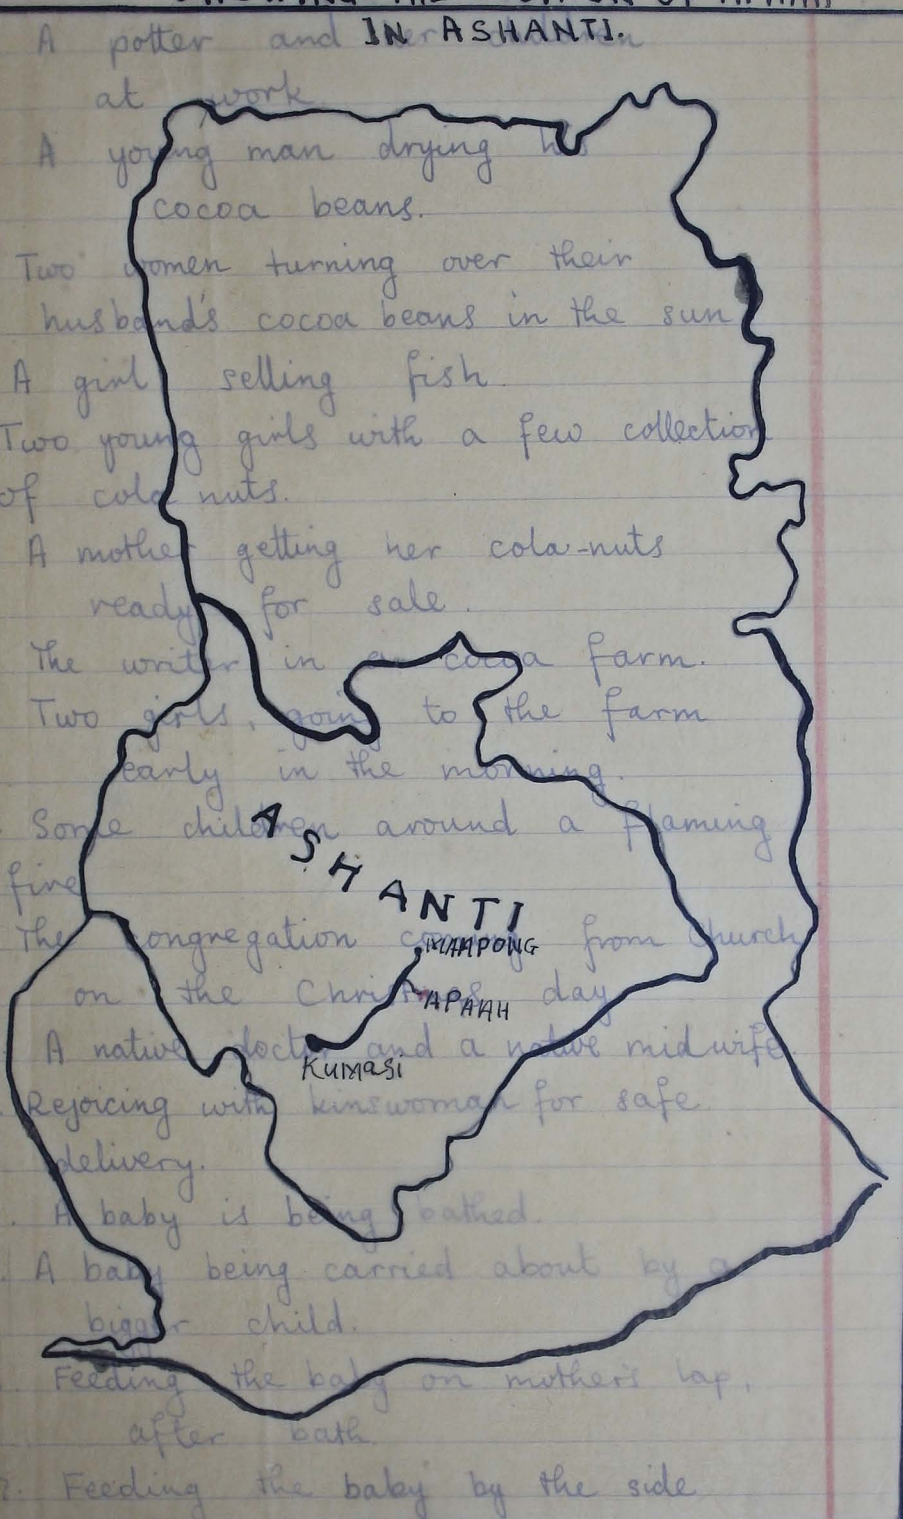 IN ASHANTI.
A potter and
at work
A young man drying his
cocoa beans.
Two women turning over their
husband's cocoa beans in the sun
A girl selling fish.
Two young girls with a few collection
of cola nuts.
A mother getting her cola-nuts
ready for sale.
The writer in a cocoa farm.
Two girls, going to the farm
early in the morning.
Some children around a flaming
fire
ASHANTI
The congregation coming from church
MAMPONG
on the Christmas day
APAAH
A native doctor and a native midwife.
Kumasi
Rejoicing with kinswoman for safe
delivery.
A baby is being bathed.
A baby being carried about by a
bigger child.
Feeding the baby on mother's lap,
after bath.
Feeding the baby by the side